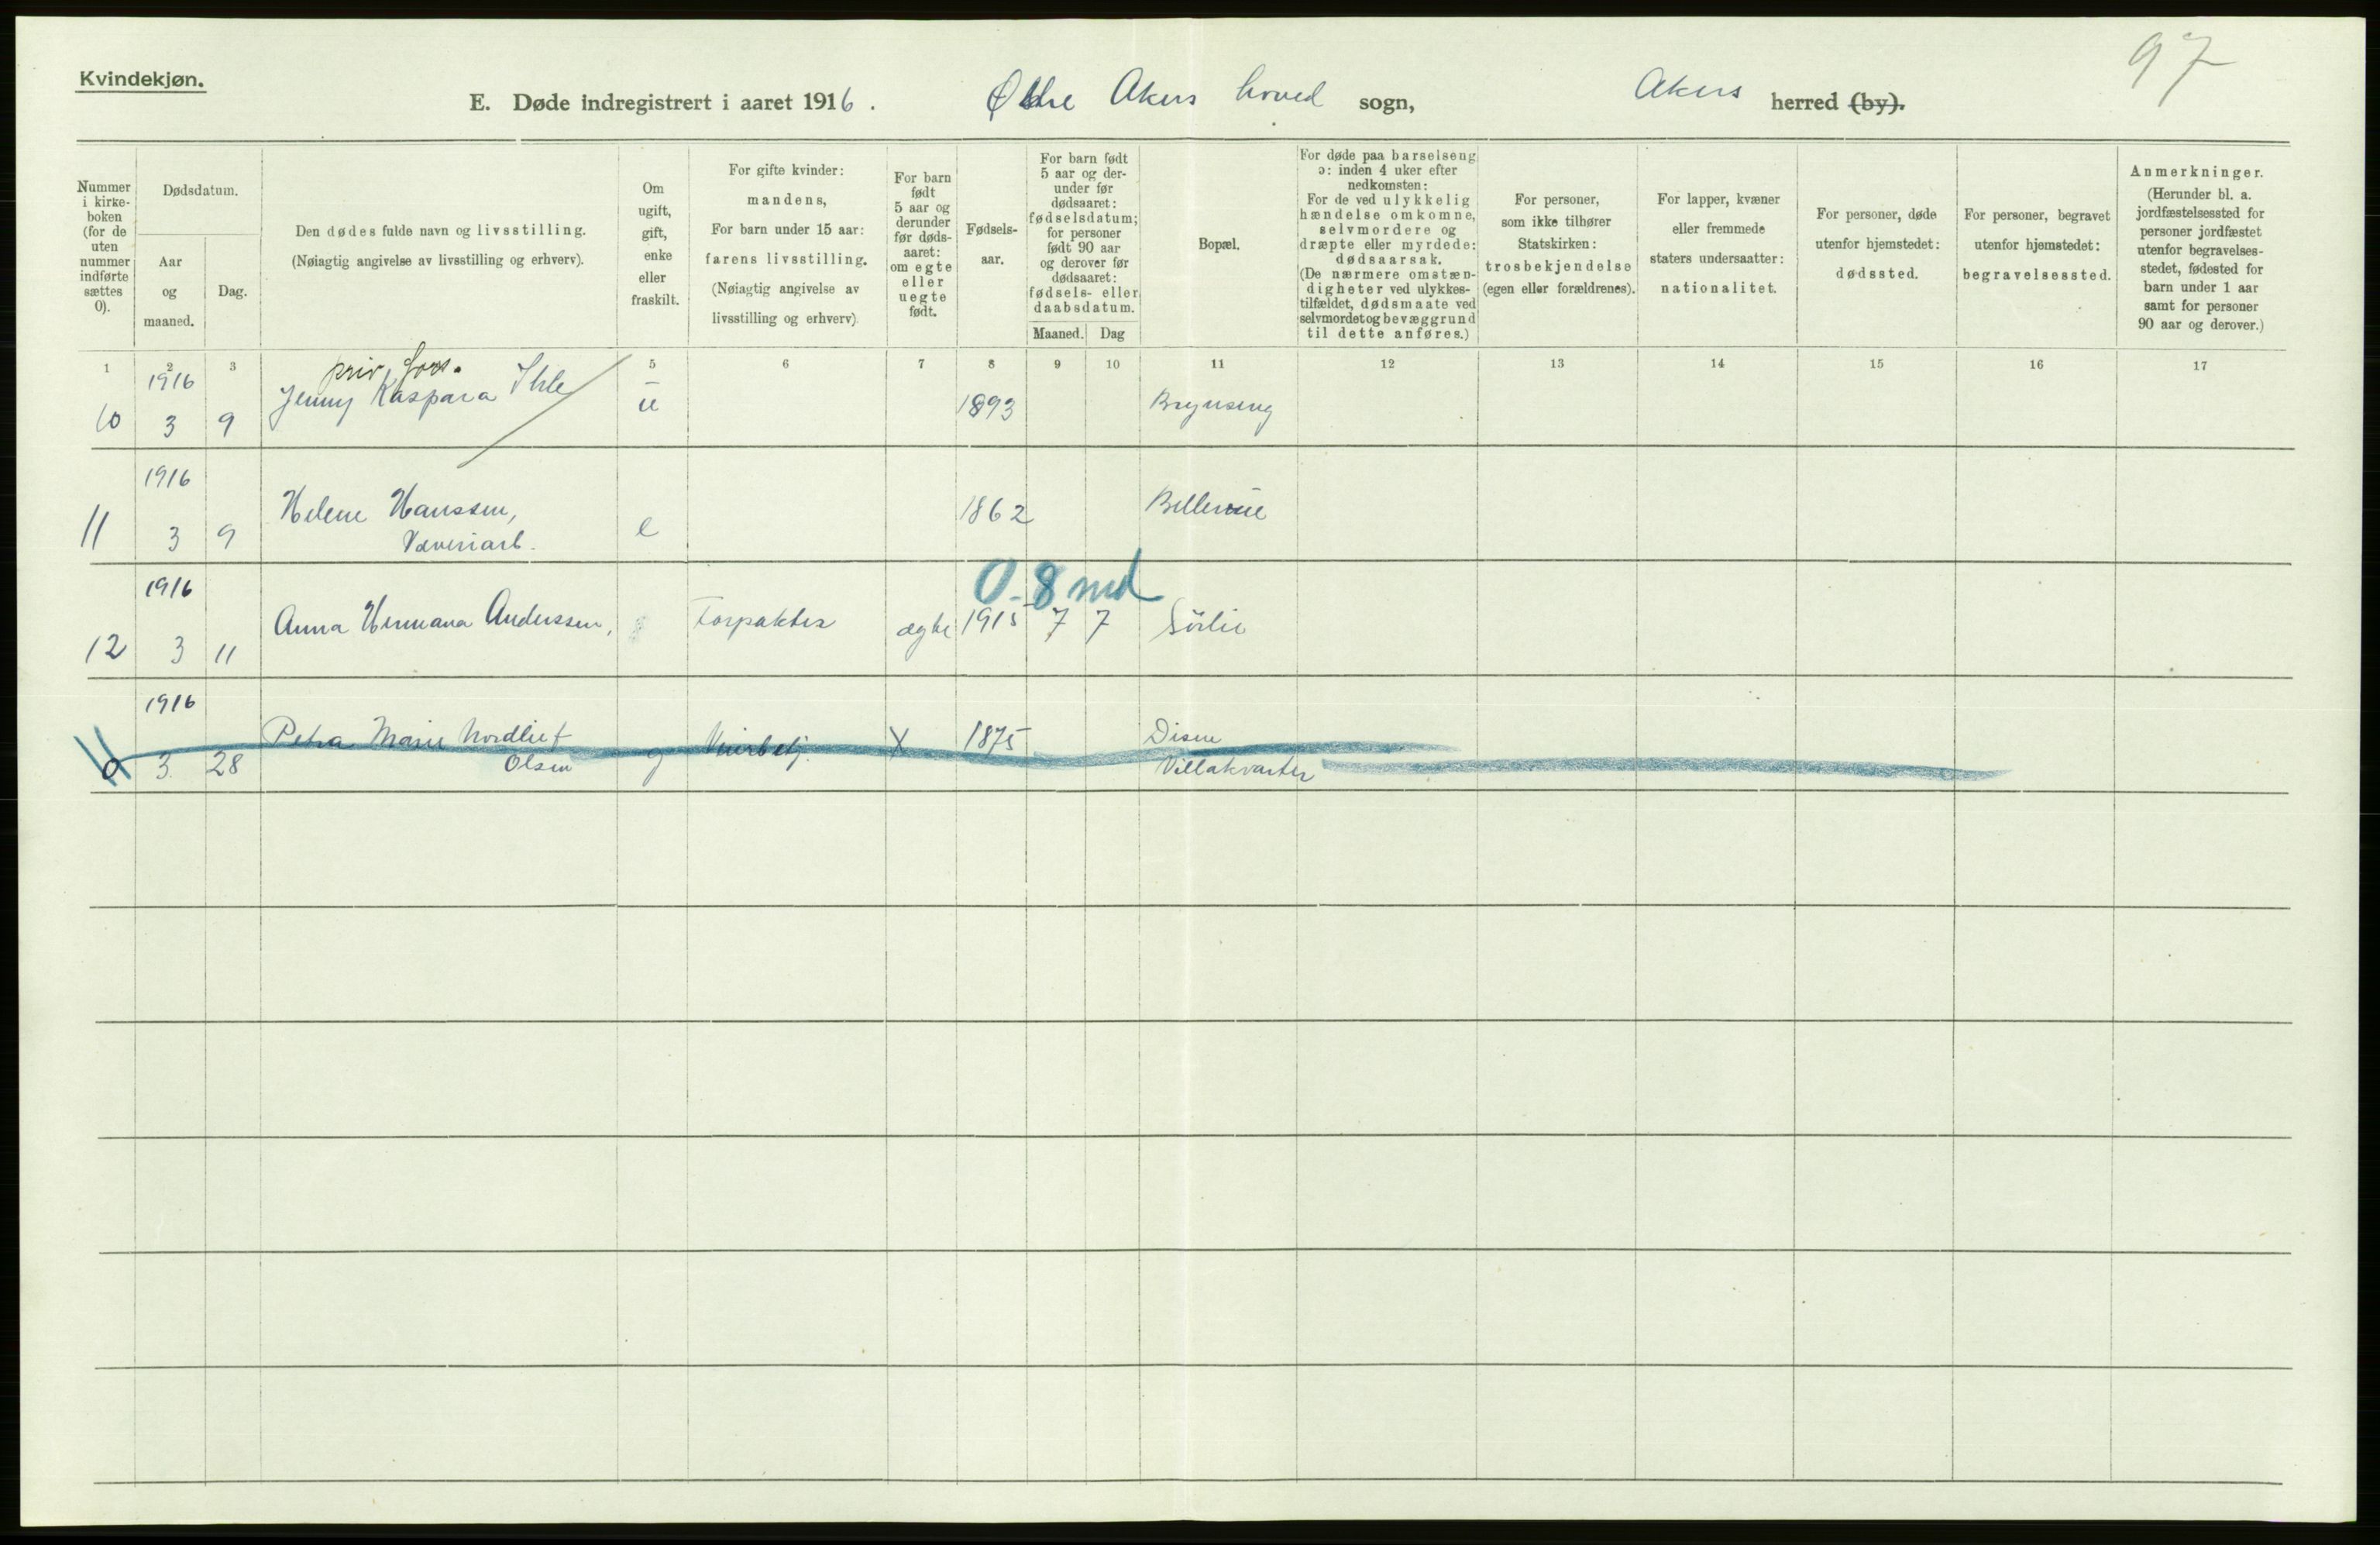 97
Kvindekjøn.
E. Døde indregistrert i aaret 1916. Østre Akers hoved sogn, Akers herred (by).
Nummer i kirkeboken (for de uten nummer indførte sættes 0).
Dødsdatum.
Aar og maaned.
Dag.
Den dødes fulde navn og livsstilling.
(Nøiagtig angivelse av livsstilling og erhverv).
Om ugift, gift, enke eller fraskilt.
For gifte kvinder: mandens,
For barn under 15 aar: farens livsstilling.
(Nøiagtig angivelse av livsstilling og erhverv)
For barn født 5 aar og derunder før dødsaaret: om egte eller uegte født.
Fødselsaar.
For barn født 5 aar og derunder før dødsaaret: fødselsdatum; for personer født 90 aar og derover før dødsaaret: fødsels- eller daabsdatum.
Maaned. Dag
Bopæl.
For døde paa barselseng ɔ: inden 4 uker efter nedkomsten: For de ved ulykkelig hændelse omkomne, selvmordere og dræpte eller myrdede: dødsaarsak. (De nærmere omstændigheter ved ulykkestilfældet, dødsmaate ved selvmordet og bevæggrund til dette anføres.)
For personer, som ikke tilhører Statskirken: trosbekjendelse (egen eller forældrenes).
For lapper, kvæner eller fremmede staters undersaatter: nationalitet.
For personer, døde utenfor hjemstedet: dødssted.
For personer, begravet utenfor hjemstedet: begravelsessted.
Anmerkninger. (Herunder bl. a. jordfæstelsessted for personer jordfæstet utenfor begravelsesstedet, fødested for barn under 1 aar samt for personer 90 aar og derover.)
1 2 3 5 6 7 8 9 10 11 12 13 14 15 16 17
1916 priv. fors.
10 3 9 Jenny Kaspara Ihle u 1893 Brynseng
1916
11 3 9 Helene Hanssen, e 1862 Bellevue
Væveriarb.
0-8 md
1916
12 3 11 Anna Hermana Anderssen, Forpakter ægte 1915 7 7 Sörlie
1916
0 3 28 Petra Marie Nordlie f g X 1875 Disen
Olsen Villakvarter